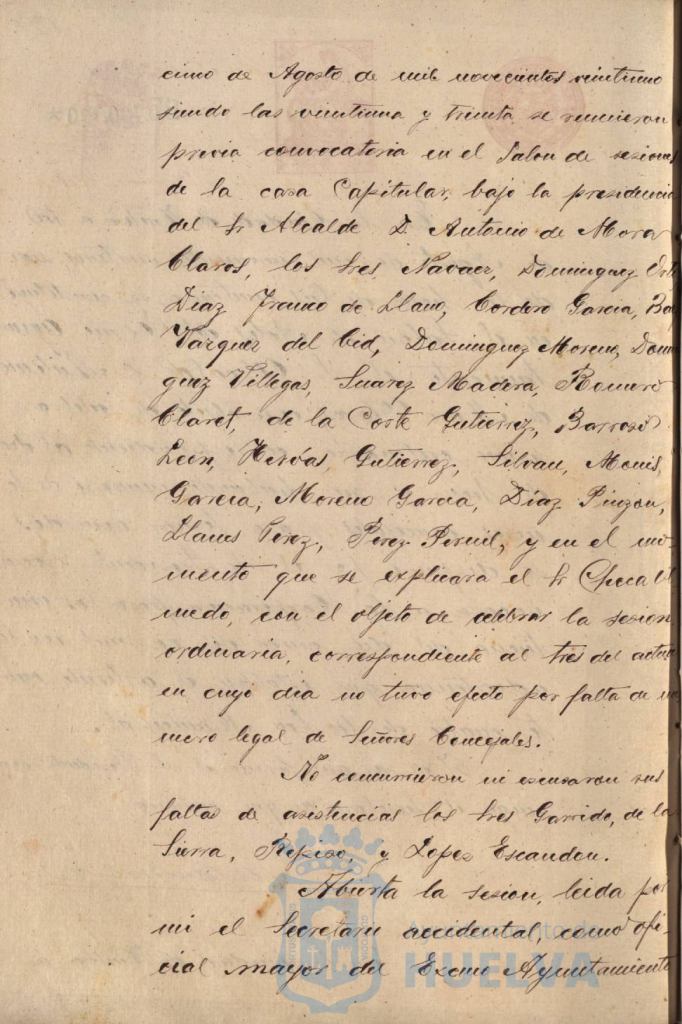 cinco de Agosto de mil novecientos veintiuno
siendo las veintiuna y treinta se reunieron
previa convocatoria en el Salon de sesiones
de la casa Capitular, bajo la presidencia
del Sr Alcalde D. Antonio de Mora
Claros, los Sres Navaez, Dominguez Ort
Diaz Franco de Llano, Cordero Garcia,
Vazquez del Cid, Dominguez Moreno, Domin
guez Villegas, Suarez Madera, Romero
Claret, de la Corte Gutierrez, Barroso
León, Hervás Gutierrez, Silvan, Monis,
Garcia, Moreno Garcia, Díaz Pinzon,
Llanes Perez, Perez Pernil, y en el mo
mento que se explicara el Sr Checa Ol
medo, con el objeto de celebrar la sesion
ordinaria, correspondiente al tres del actual
en cuyo dia no tuvo efecto por falta de nu
mero legal de Señores Concejales.
No concurrieron ni escusaron sus
faltas de asistencias los Sres Garrido, de la
Sierra, Repiso, y Lopez Escandon.
Abierta la sesion, leida por
mi el Secretario accidental, como ofi-
cial mayor del Excmo Ayuntamiento
Ayuntamiento de
HUELVA